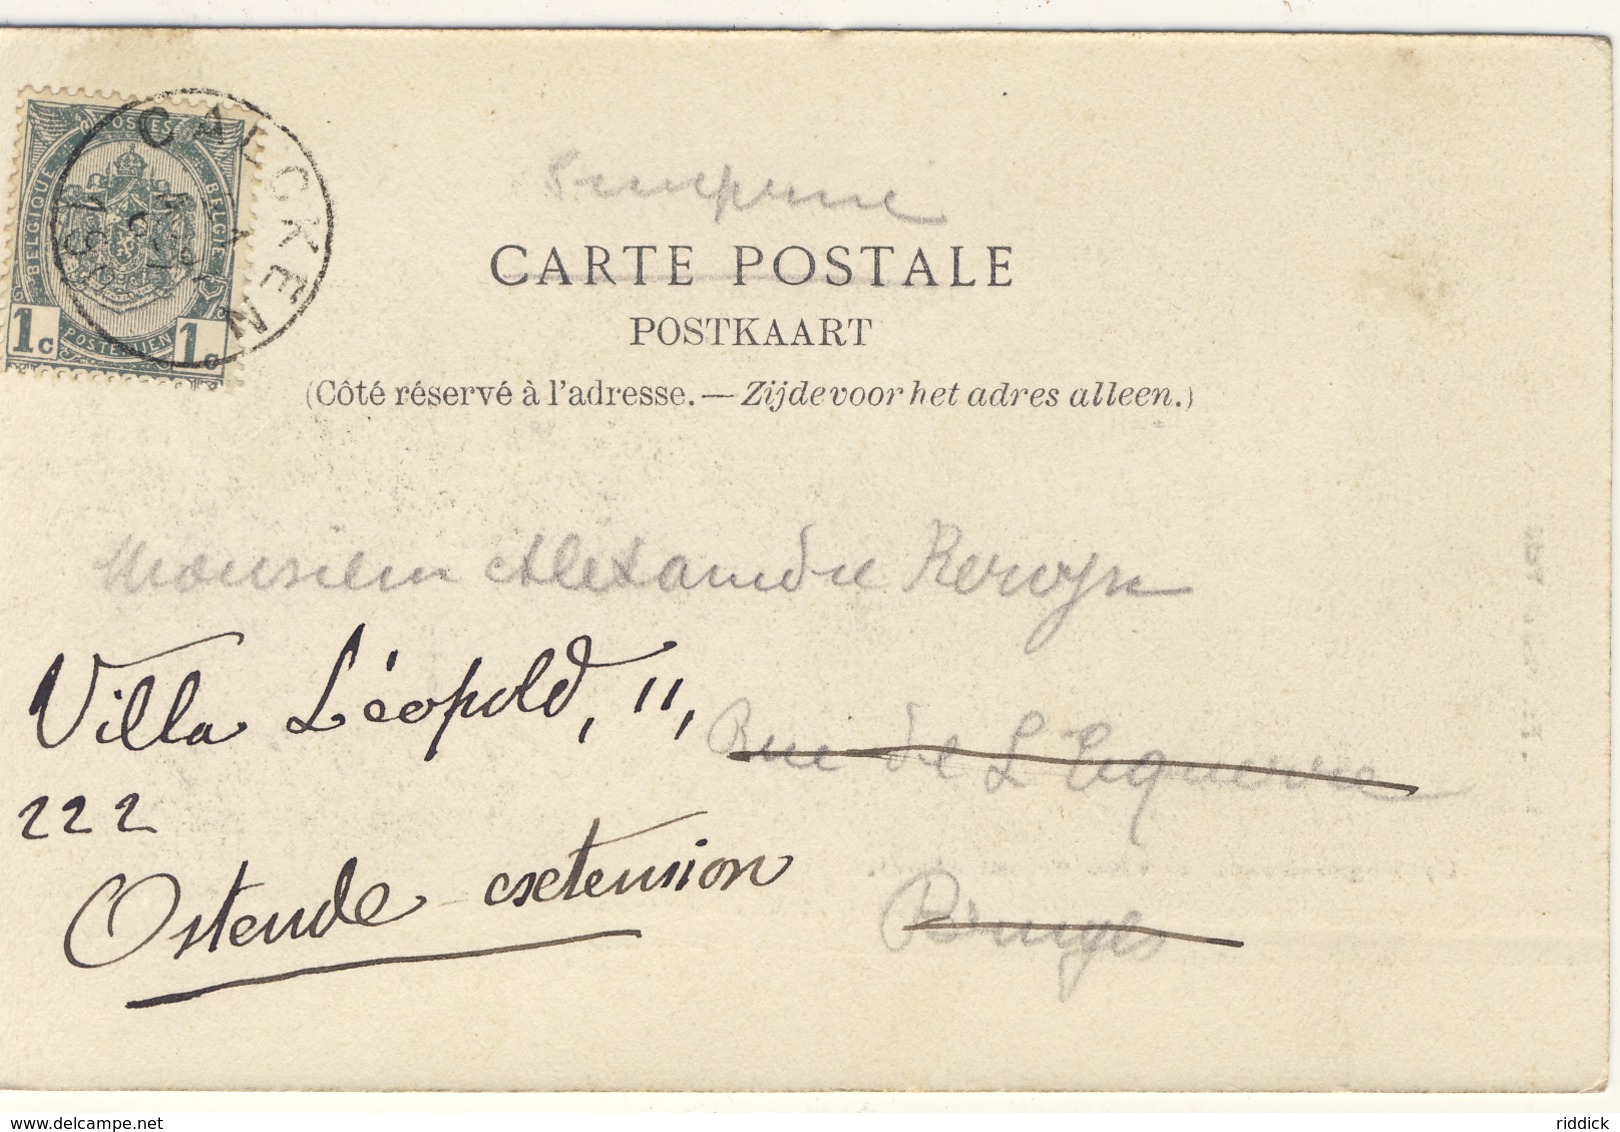 POSTES
BELGIQUE
BELGIE
1c
POSTERIJEN
1c
CALCKEN
Imprimé
CARTE POSTALE
POSTKAART
(Côté réservé à l'adresse.—Zijde voor het adres alleen.)
Monsieur Alexandre Kervyn
Villa Léopold, 11,
Rue de L'Equerre
222
Ostende exetension
Bruges
delcampe.net
riddick